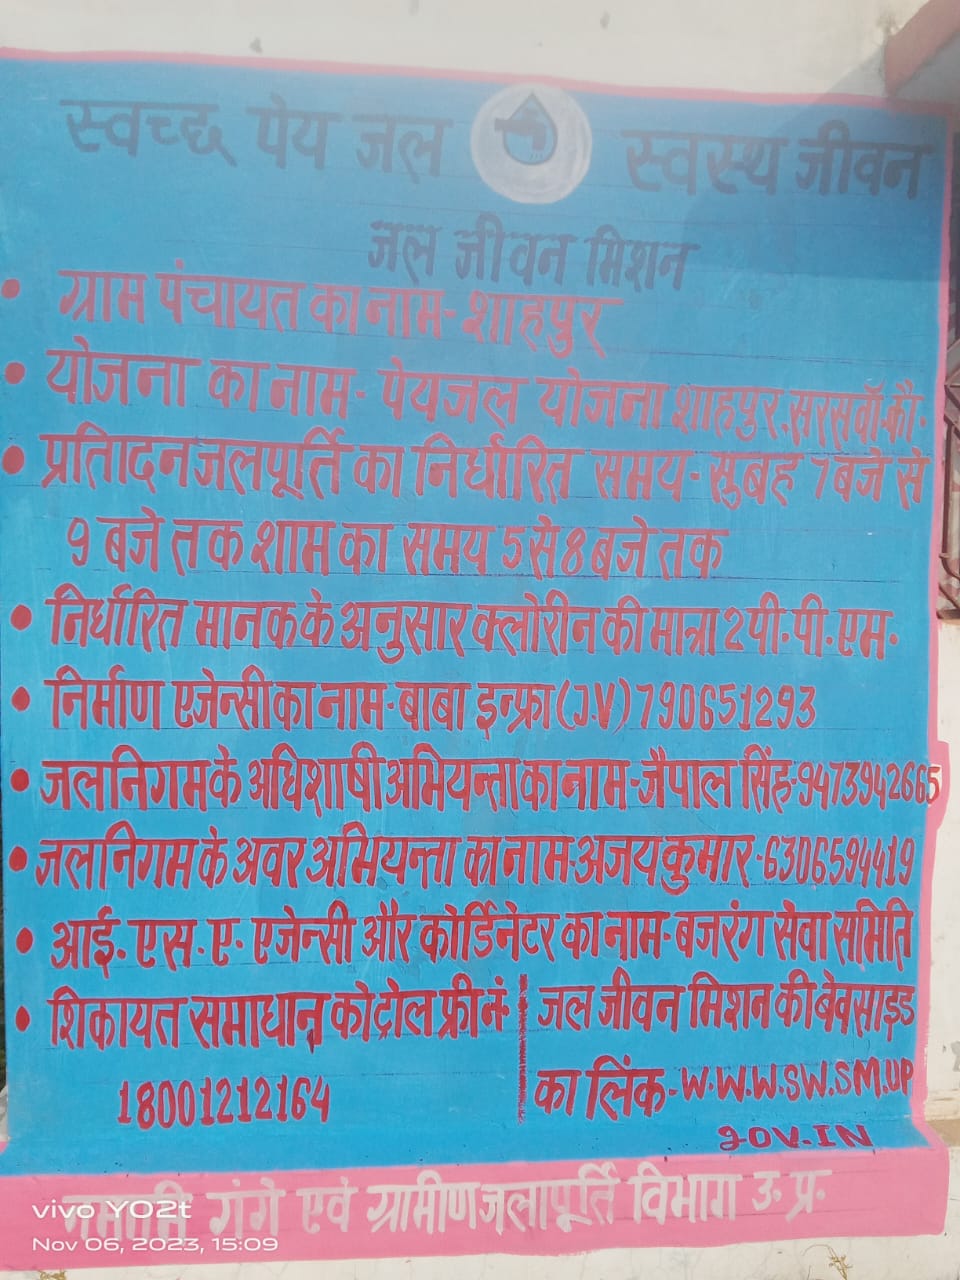 स्वच्छ पेय जल स्वस्थ जीवन
जल जीवन मिशन
• ग्राम पंचायत का नाम- शाहपुर
• योजना का नाम- पेयजल योजना शाहपुर, सरसवॉ कौ.
• प्रतिादन जलपूर्ति का निर्धारित समय- सुबह 7 बजे से
9 बजे तक शाम का समय 5 से 8 बजे तक
• निर्धारित मानक के अनुसार क्लोरीन की मात्रा 2 पी. पी. एम.
• निर्माण एजेन्सी का नाम- बाबा इन्फ्रा (J.V) 790651293
• जलनिगम के अधिशाषी अभियन्ता का नाम- जैपाल सिंह- 9473942665
• जलनिगम के अवर अभियन्ता का नाम- अजय कुमार- 6306594419
• आई. एस. ए. एजेन्सी और कोर्डिनेटर का नाम- बजरंग सेवा समिति
• शिकायत समाधान को ट्रोल फ्री नं
18001212164
जल जीवन मिशन की बेवसाइड
का लिंक- W.W.W.SW.SM.UP
gov.IN
नमामि गंगे एवं ग्रामीण जलापूर्ति विभाग उ. प्र.
vivo Y02t
Nov 06, 2023, 15:09